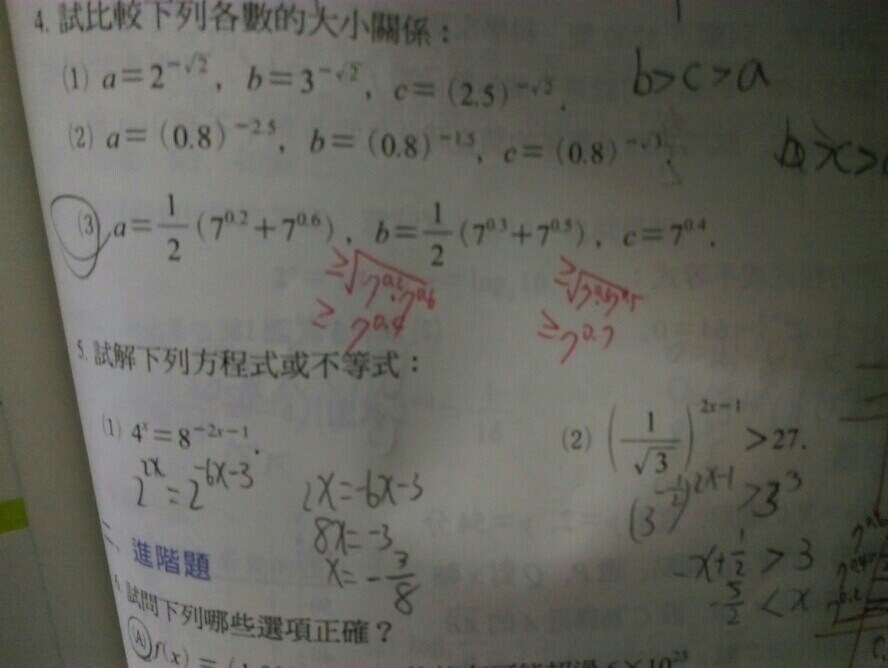 4. 試比較下列各數的大小關係：
(1) a=2^{-√2}, b=3^{-√2}, c=(2.5)^{-√2}. b>c>a
(2) a=(0.8)^{-2.5}, b=(0.8)^{-1.5}, c=(0.8)^{-√3}.
(3) a=1/2(7^{0.2}+7^{0.6}), b=1/2(7^{0.3}+7^{0.5}), c=7^{0.4}.
≥√(7^{0.2}·7^{0.6})
≥7^{0.4} ≥7^{0.7}
5. 試解下列方程式或不等式：
(1) 4^x=8^{-2x-1}. (2) (1/√3)^{2x-1}>27.
2^{2x}=2^{-6x-3} 2x=-6x-3 (3^{-1/2})^{2x-1}>3^3
8x=-3 -x+1/2>3
x=-3/8 -5/2<x
二、進階題
6. 試問下列哪些選項正確？
(A) f(x)=